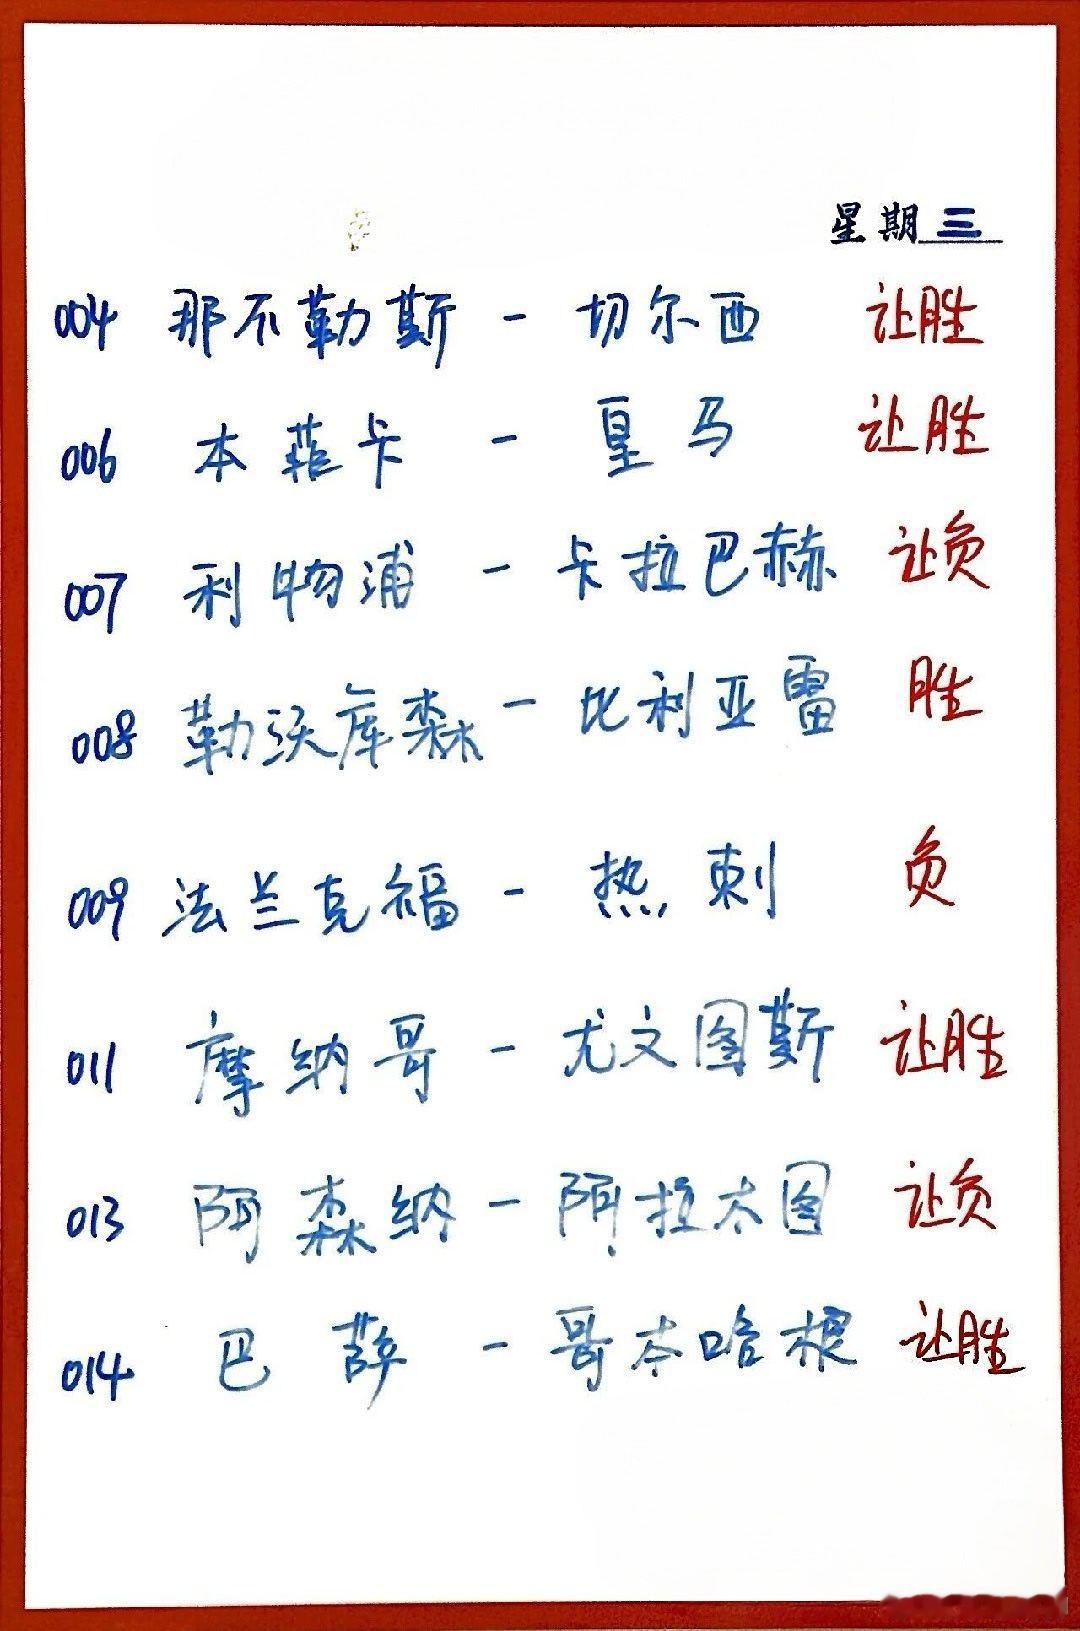 星期三
004 那不勒斯 - 切尔西 让胜
006 本菲卡 - 皇马 让胜
007 利物浦 - 卡拉巴赫 让负
008 勒沃库森 - 比利亚雷 胜
009 法兰克福 - 热刺 负
011 摩纳哥 - 尤文图斯 让胜
013 阿森纳 - 阿拉木图 让负
014 巴萨 - 哥本哈根 让胜